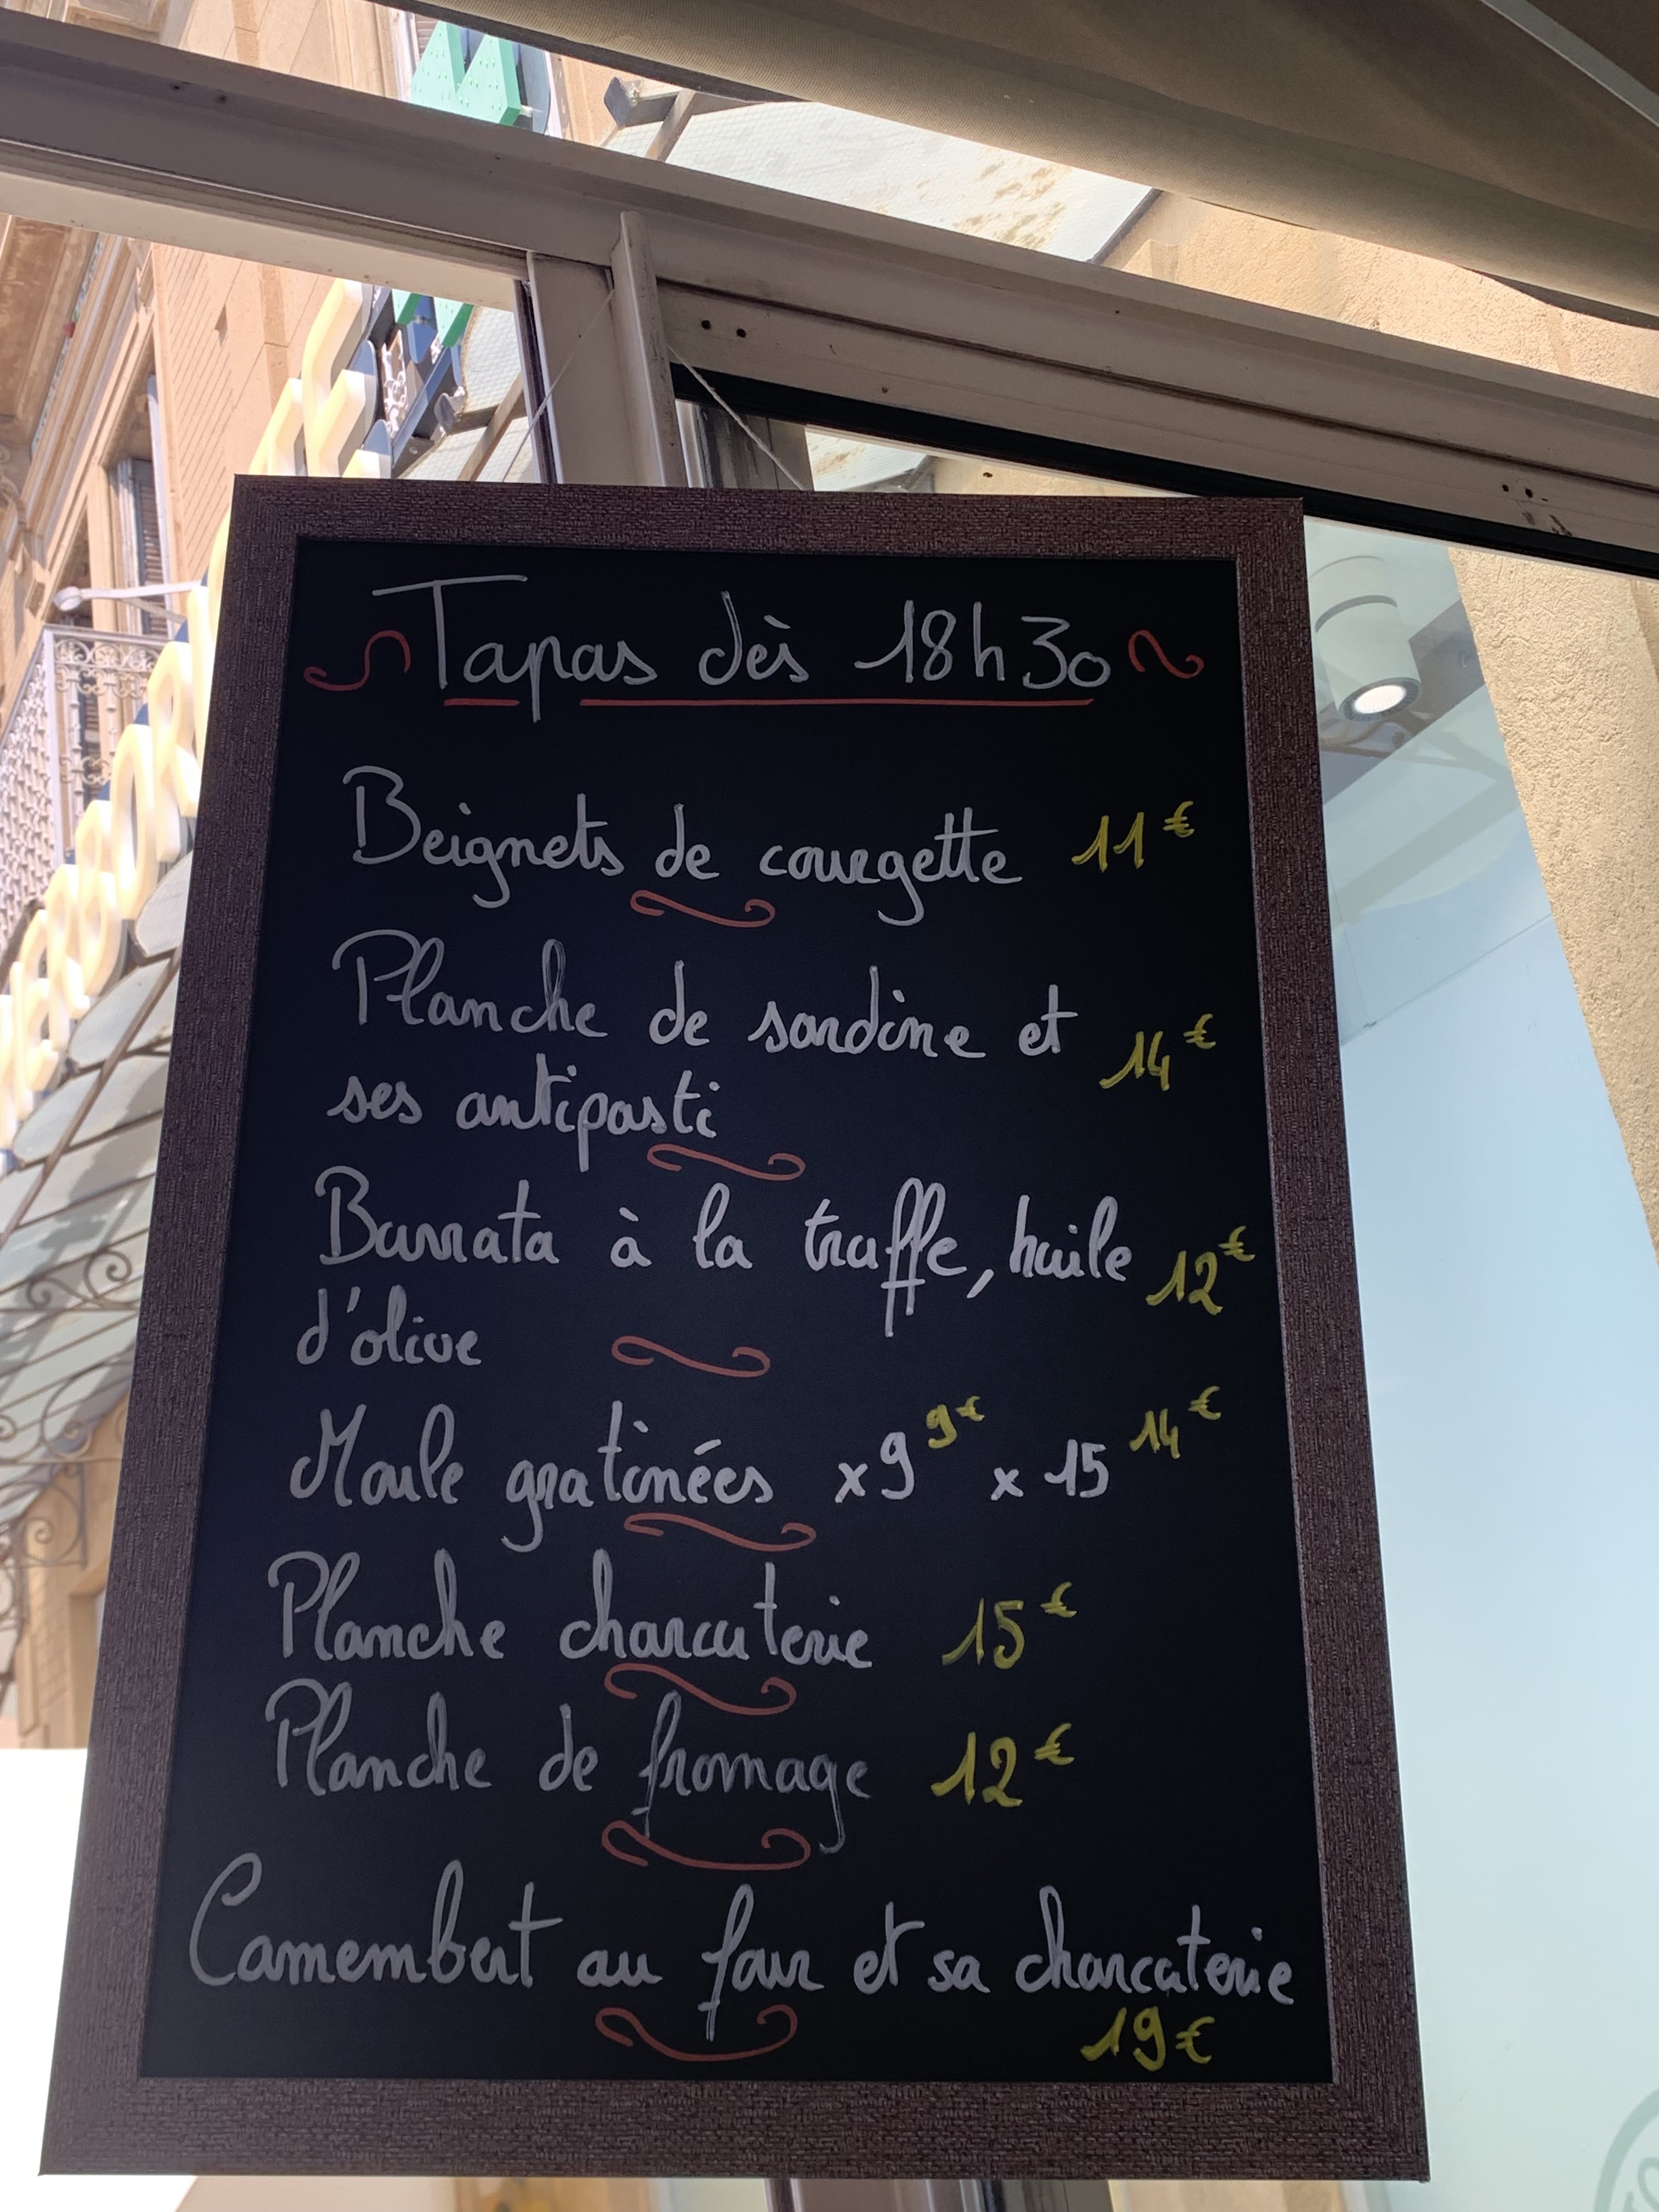 Tapas dès 18h30
Beignets de courgette 11€
Planche de sardine et 14€
ses antipasti
Burrata à la truffe, huile 12€
d'olive
Moule gratinées x9 9€ x 15 14€
Planche charcuterie 15€
Planche de fromage 12€
Camembert au four et sa charcuterie
19€